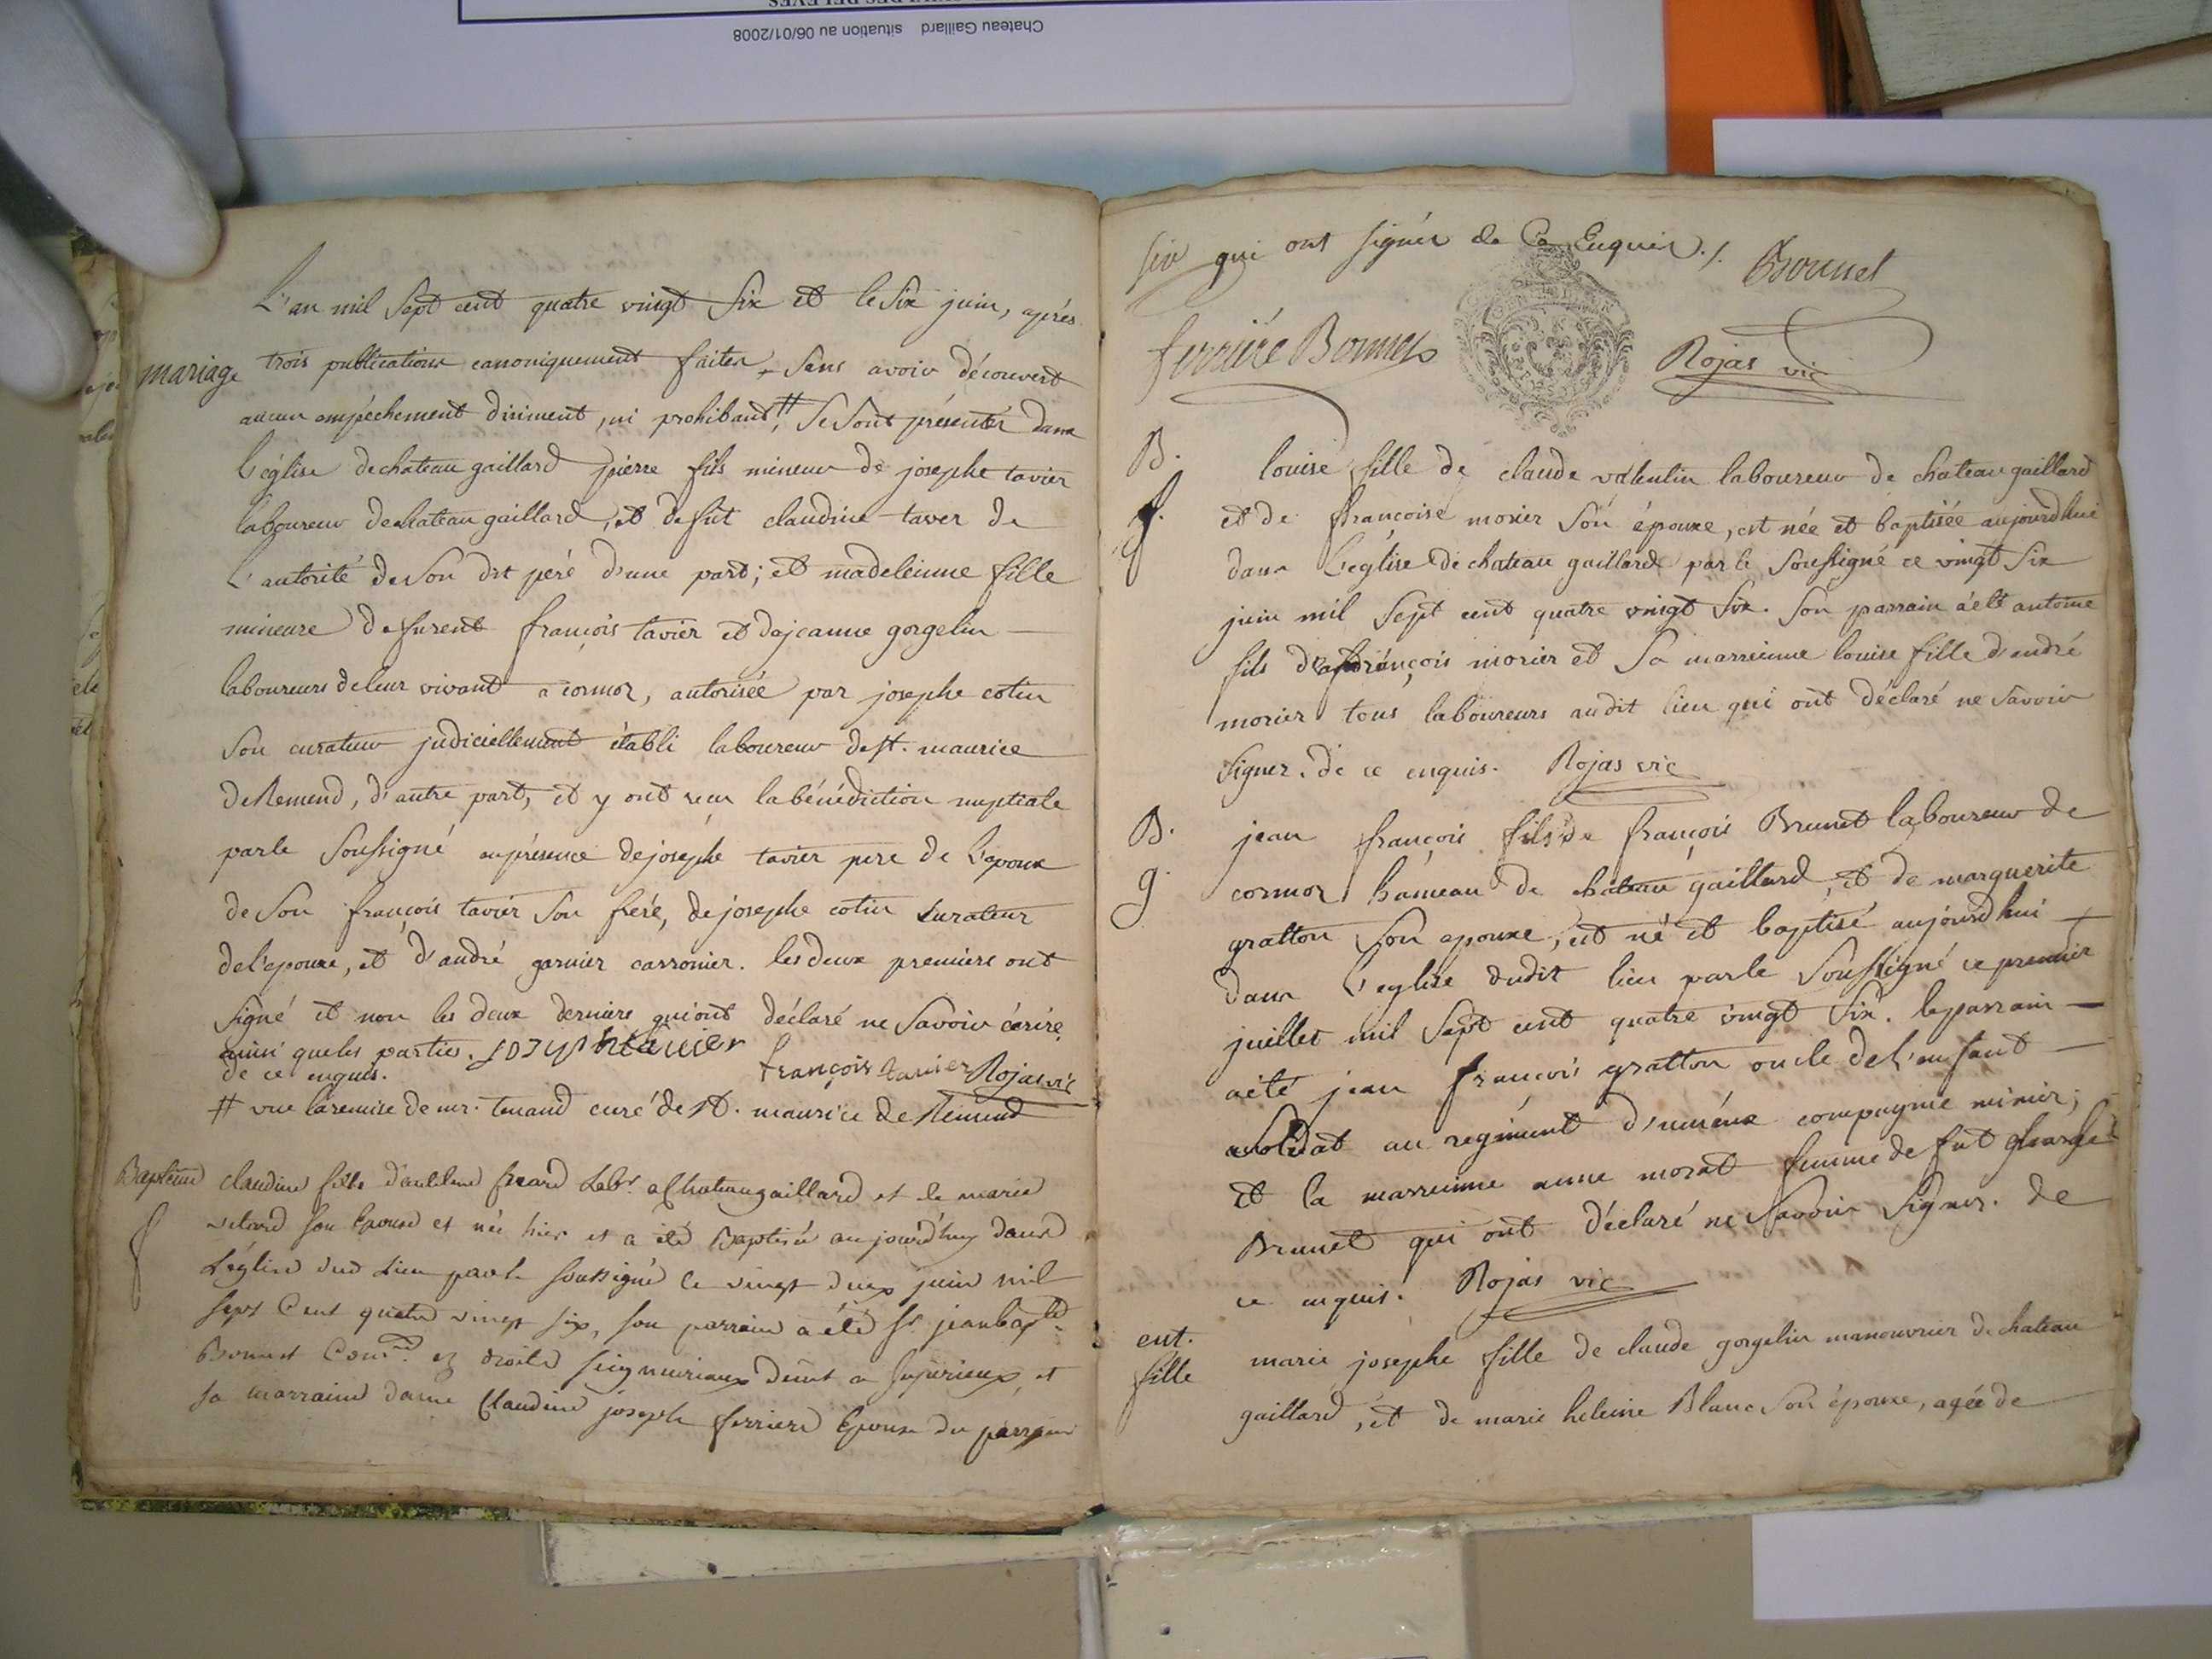 Chateau Gaillard situation au 06/01/2008
L'an mil sept cent quatre vingt six et le six juin, après
mariage trois publications canoniquement faites, sans avoir découvert
aucun empêchement diriment, ni prohibant #, se sont présentés dans
l'église de chateau gaillard pierre fils mineur de josephe tavier
laboureur de chateau gaillard, et de fût claudine taver de
l'autorité de son dit pére d'une part; et madeleinne fille
mineure de furent françois tavier et de jeanne gorgelin
laboureurs de leur vivant a cormoz, autorisée par josephe cotin
son curateur judiciellement établi laboureur de st. maurice
de Remend, d'autre part, et y ont reçu la bénédiction nuptiale
par le soussigné en présence de josephe tavier pere de l'epoux
de son françois tavier son frére, de josephe cotin curateur
de l'epouse, et d'andré garnier carronier. les deux premiers ont
signé et non les deux derniers qui ont déclaré ne savoir écrire
ainsi que les parties. joseph tavier
de ce enquis. françois tavier Rojas vic
# vue la remise de mr. tenand curé de st. maurice de Remend
Baptême claudine fille d' frcard Labr. a Chateaugaillard et de marie
f son Epouse et née hier et a été Baptisée aujourd'huy dans
L'église dud Lieu par le soussigné le vingt deux juin mil
sept Cent quatre vingt six, son parrain a été sr. jean bapte
Bonnet Comre. ez droits seigneuriaux demt a jujurieux, et
sa marraine dame Claudine joseph ferriere Epouse du parrain
siv qui ont signés de Ce Enquis ./. Bonnet
ferriére Bonnet Rojas vic
B. louise fille de claude valentin laboureur de chateau gaillard
f. et de françoise morier son épouse, est née et baptisée aujourdhui
dans l'église de chateau gaillard par le soussigné ce vingt six
juin mil sept cent quatre vingt six. son parrain a été antoine
fils de françois morier et sa marreinne louise fille d'andré
morier tous laboureurs audit lieu qui ont déclaré ne savoir
signer. de ce enquis. Rojas vic
B. jean françois fils de françois Brunet laboureur de
g. cormoz hameau de chateau gaillard, et de marguerite
gratton son epouse, est né et baptisé aujourdhui
dans l'eglise dudit lieu par le soussigné ce premier
juillet mil sept cent quatre vingt six. le parrain
a été jean françois gratton oncle de l'enfant
soldat au regiment compagnie
et la marreinne anne morat femme de fut
Brunet qui ont déclaré ne savoir signer. de
ce enquis. Rojas vic
ent. marie josephe fille de claude gorgelin manouvrier de chateau
fille gaillard, et de marie heleine Blanc son épouse, agée de